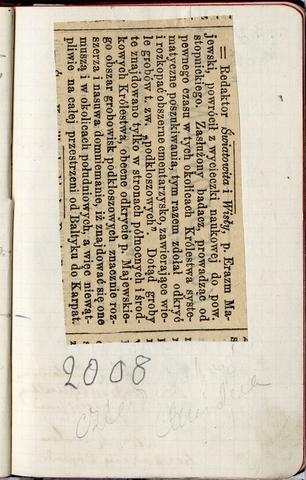 = Redaktor Światowita i Wisły, p. Erazm Ma-
jewski, powrócił z wycieczki naukowej do pow.
stopnickiego. Zasłużony badacz, prowadząc od
pewnego czasu w tych okolicach Królestwa syste-
matyczne poszukiwania, tym razem zdołał odkryć
i rozkopać obszerne cmentarzysko, zawierające wie-
le grobów t. zw. „podkloszowych." Dotąd groby
te znajdowano tylko w stronach północnych i środ-
kowych Królestwa, obecne odkrycie p. Majewskie-
go obszar grobowisk podkloszowych znacznie roz-
szerza i nasuwa domniemanie, iż znajdować się one
muszą i w okolicach południowych, a więc niewąt-
pliwie na całej przestrzeni od Bałtyku do Karpat.
2008